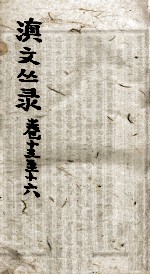 滇文丛录
卷十五至十六